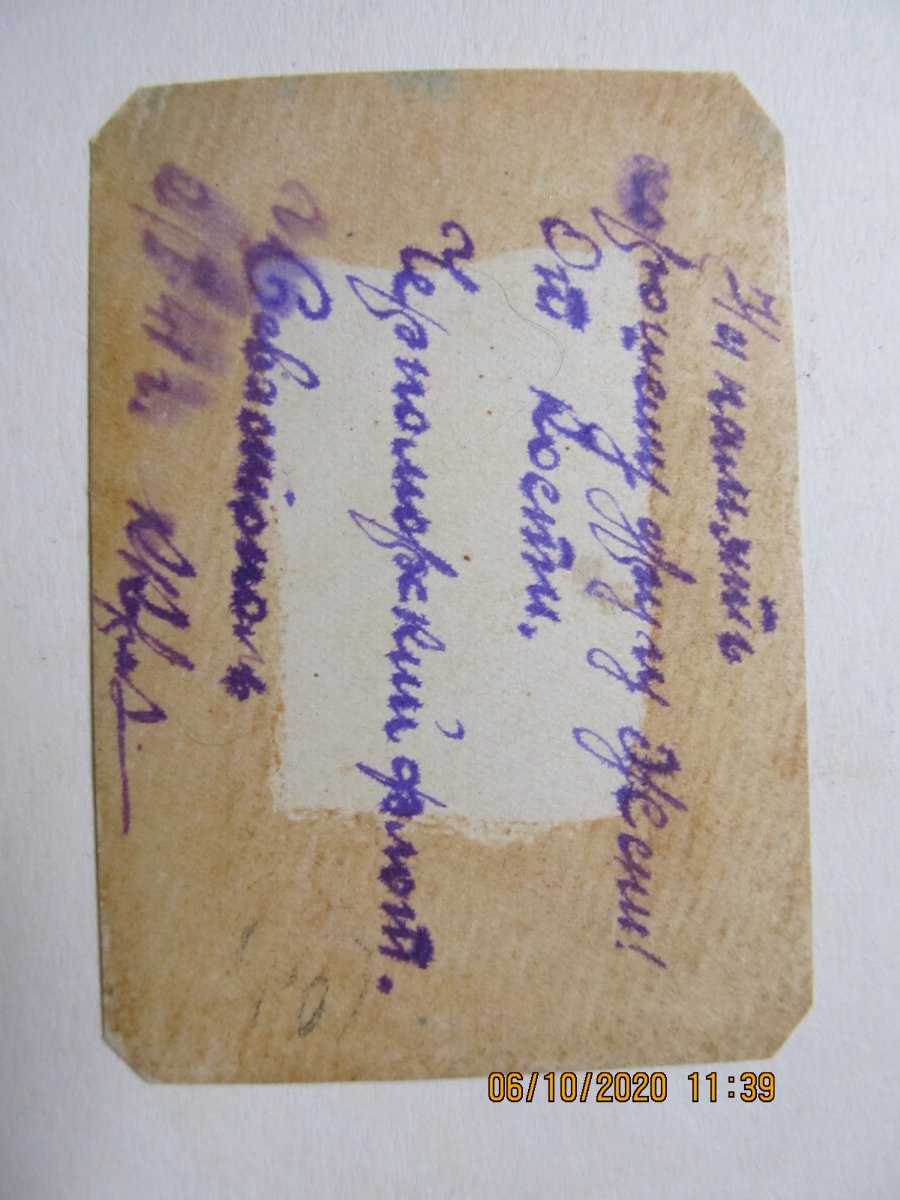 На память
хорошему другу Жени!
От Кости.
Черноморский флот.
г. Севастополь
06/10/2020 11:39